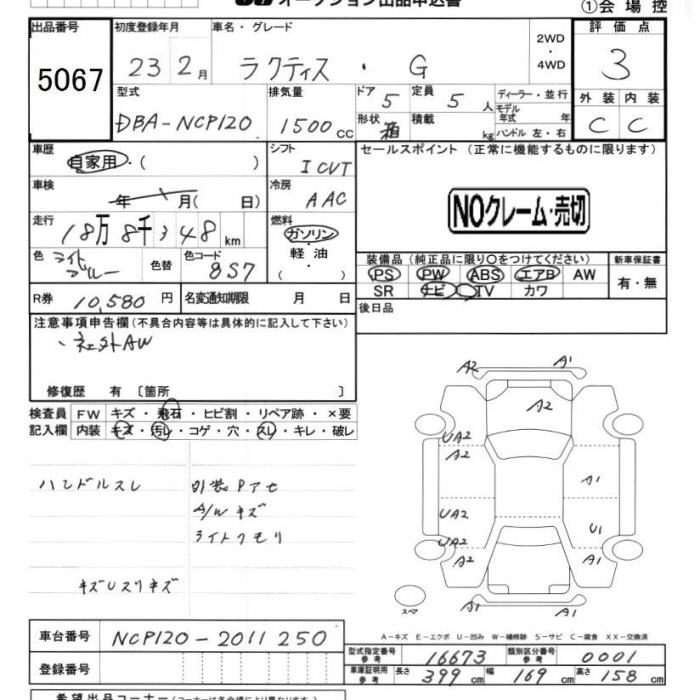 オークション出品申込書
①会場控
出品番号
5067
初度登録年月
23 2月
車名・グレード
ラクティス・G
2WD・4WD
評価点
3
型式
DBA-NCP120
排気量
1500cc
ドア 5
形状 箱
定員 5人
積載 kg
ディーラー・並行
モデル年式 年
ハンドル 左・右
外装 内装
C C
車歴
自家用・( )
シフト
I CVT
車検
年 月( 日)
冷房
AAC
走行
18万8千348km
燃料
ガソリン・軽油・( )
色
ライトブルー
色替
色コード
8S7
R券 10,580円
名変通知期限 月 日
セールスポイント (正常に機能するものに限ります)
NOクレーム・売切
装備品(純正品に限り○をつけてください)
PS PW ABS エアB AW
SR ナビ TV カワ
新車保証書
有・無
後日品
注意事項申告欄(不具合内容等は具体的に記入して下さい)
、社外AW
修復歴 有〔箇所 〕
検査員記入欄
FW キズ・飛石・ヒビ割・リペア跡・×要
内装 キズ・汚レ・コゲ・穴・スレ・キレ・破レ
ハンドルスレ
外装Pアセ
A/Wキズ
ライトクモリ
キズUスリキズ
A2 A1
A2
UA2
A2
A1
UA2
U1
A2
A1
A1 A1
スペア
A-キズ E-エクボ U-凹み W-補修跡 S-サビ C-腐食 XX-交換済
車台番号
NCP120-2011250
登録番号
型式指定番号 参考 16673
類別区分番号 参考 0001
車庫証明用 参考 長さ 399cm 幅 169cm 高さ 158cm
希望出品コーナー